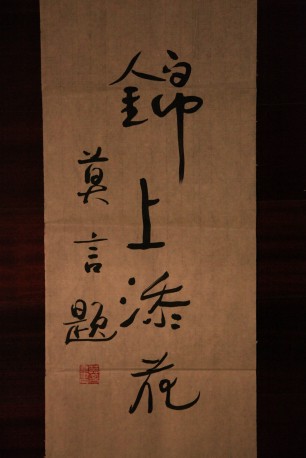 錦上添花
莫言題